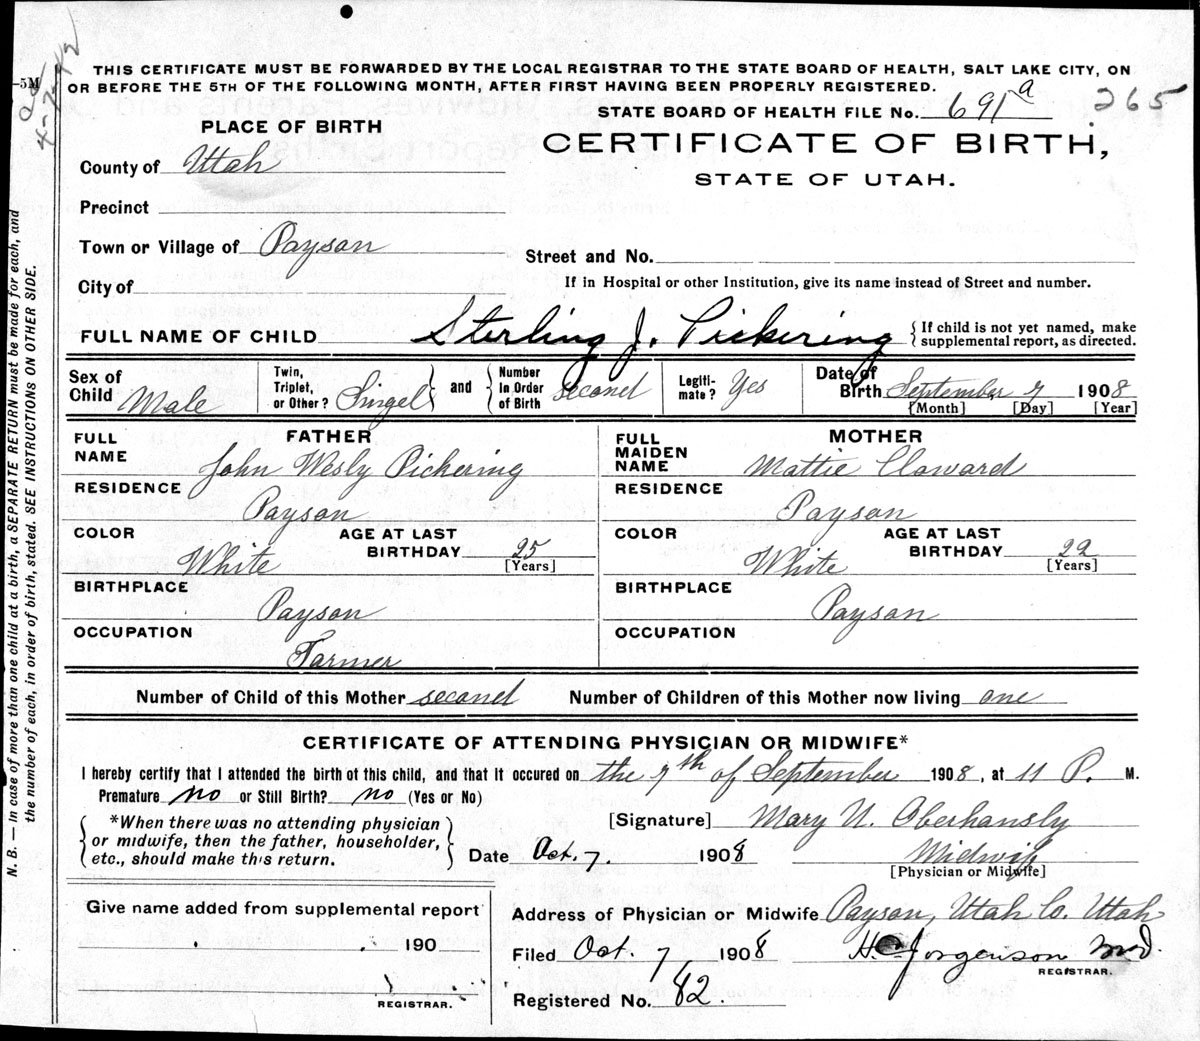 THIS CERTIFICATE MUST BE FORWARDED BY THE LOCAL REGISTRAR TO THE STATE BOARD OF HEALTH, SALT LAKE CITY, ON
OR BEFORE THE 5TH OF THE FOLLOWING MONTH, AFTER FIRST HAVING BEEN PROPERLY REGISTERED.
—5M
STATE BOARD OF HEALTH FILE No. 691a 265
PLACE OF BIRTH
CERTIFICATE OF BIRTH,
STATE OF UTAH.
County of Utah
Precinct
Town or Village of Payson
Street and No.
City of
If in Hospital or other Institution, give its name instead of Street and number.
FULL NAME OF CHILD Sterling J. Pickering { If child is not yet named, make
supplemental report, as directed.
Sex of Child Male
Twin, Triplet, or Other? Singel
and
Number in Order of Birth second
Legiti-mate? Yes
Date of Birth September 7 1908
[Month] [Day] [Year]
FATHER
FULL NAME John Wesly Pickering
RESIDENCE Payson
COLOR White
AGE AT LAST BIRTHDAY 25
[Years]
BIRTHPLACE Payson
OCCUPATION Farmer
MOTHER
FULL MAIDEN NAME Mattie Cloward
RESIDENCE Payson
COLOR White
AGE AT LAST BIRTHDAY 22
[Years]
BIRTHPLACE Payson
OCCUPATION
Number of Child of this Mother second Number of Children of this Mother now living one
CERTIFICATE OF ATTENDING PHYSICIAN OR MIDWIFE*
I hereby certify that I attended the birth of this child, and that it occured on the 7th of September 1908, at 11 P. M.
Premature no or Still Birth? no (Yes or No)
{ *When there was no attending physician
or midwife, then the father, householder,
etc., should make this return. }
[Signature] Mary U. Oberhansly
Date Oct. 7. 1908 Midwife
[Physician or Midwife]
Give name added from supplemental report
190
REGISTRAR.
Address of Physician or Midwife Payson, Utah Co. Utah
Filed Oct. 7, 1908 H.C. Jorgenson M.D.
REGISTRAR.
Registered No. 82.
N. B. — In case of more than one child at a birth, a SEPARATE RETURN must be made for each, and
the number of each, in order of birth, stated. SEE INSTRUCTIONS ON OTHER SIDE.